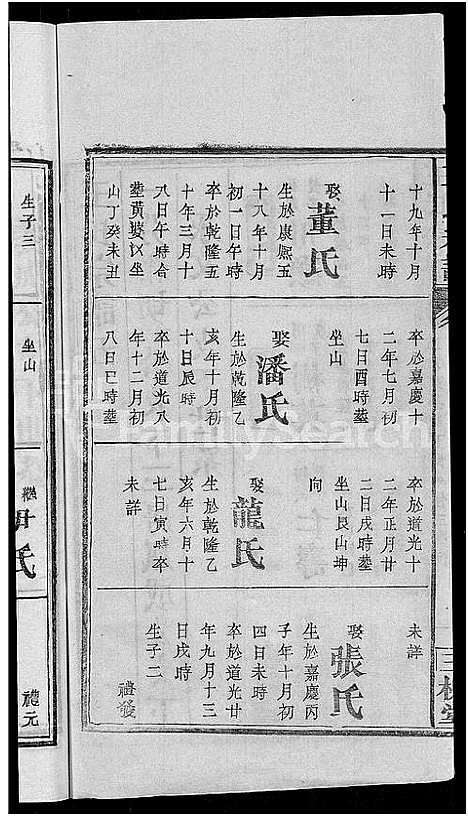 十九年十月
十一日未時
娶董氏
生於康熙五
十八年十月
初一日午時
卒於乾隆五
十年三月十
八日午時合
葬黃婆汉坐
山丁癸未丑
卒於嘉慶十
二年七月初
七日酉時葬
坐山
娶潘氏
生於乾隆乙
亥年十月初
十日辰時
卒於道光八
年十二月初
八日巳時葬
卒於道光十
二年正月廿
二日戌時葬
坐山艮山坤
向
娶龍氏
生於乾隆乙
亥年六月十
七日寅時卒
未詳
未詳
娶張氏
生於嘉慶丙
子年十月初
四日未時
卒於道光廿
年九月十三
日戌時
生子二
禮發
三槐堂
生子三
坐山
氏
禮元
FamilySearch